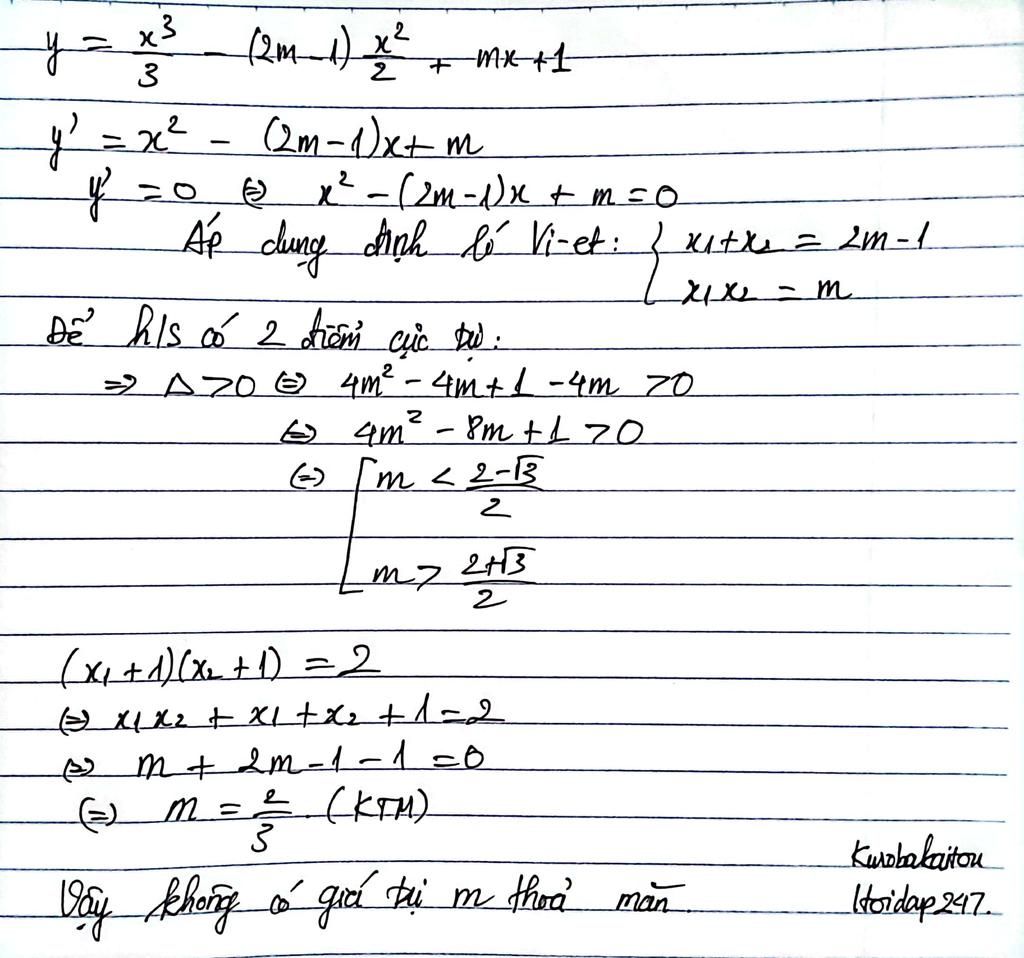 y = x³/3 - (2m-1) x²/2 + mx + 1
y' = x² - (2m-1)x + m
y' = 0 ⇔ x² - (2m-1)x + m = 0
Áp dụng định lí Vi-et: { x₁+x₂ = 2m-1
x₁x₂ = m
Để h/s có 2 điểm cực trị:
⇒ Δ>0 ⇔ 4m² - 4m + 1 - 4m > 0
⇔ 4m² - 8m + 1 > 0
⇔ [ m < (2-√3)/2
m > (2+√3)/2
(x₁+1)(x₂+1) = 2
⇔ x₁x₂ + x₁ + x₂ + 1 = 2
⇔ m + 2m - 1 - 1 = 0
⇔ m = 2/3. (KTM)
Vậy không có giá trị m thoả mãn.
Kurobakaitou
Hoidap247.